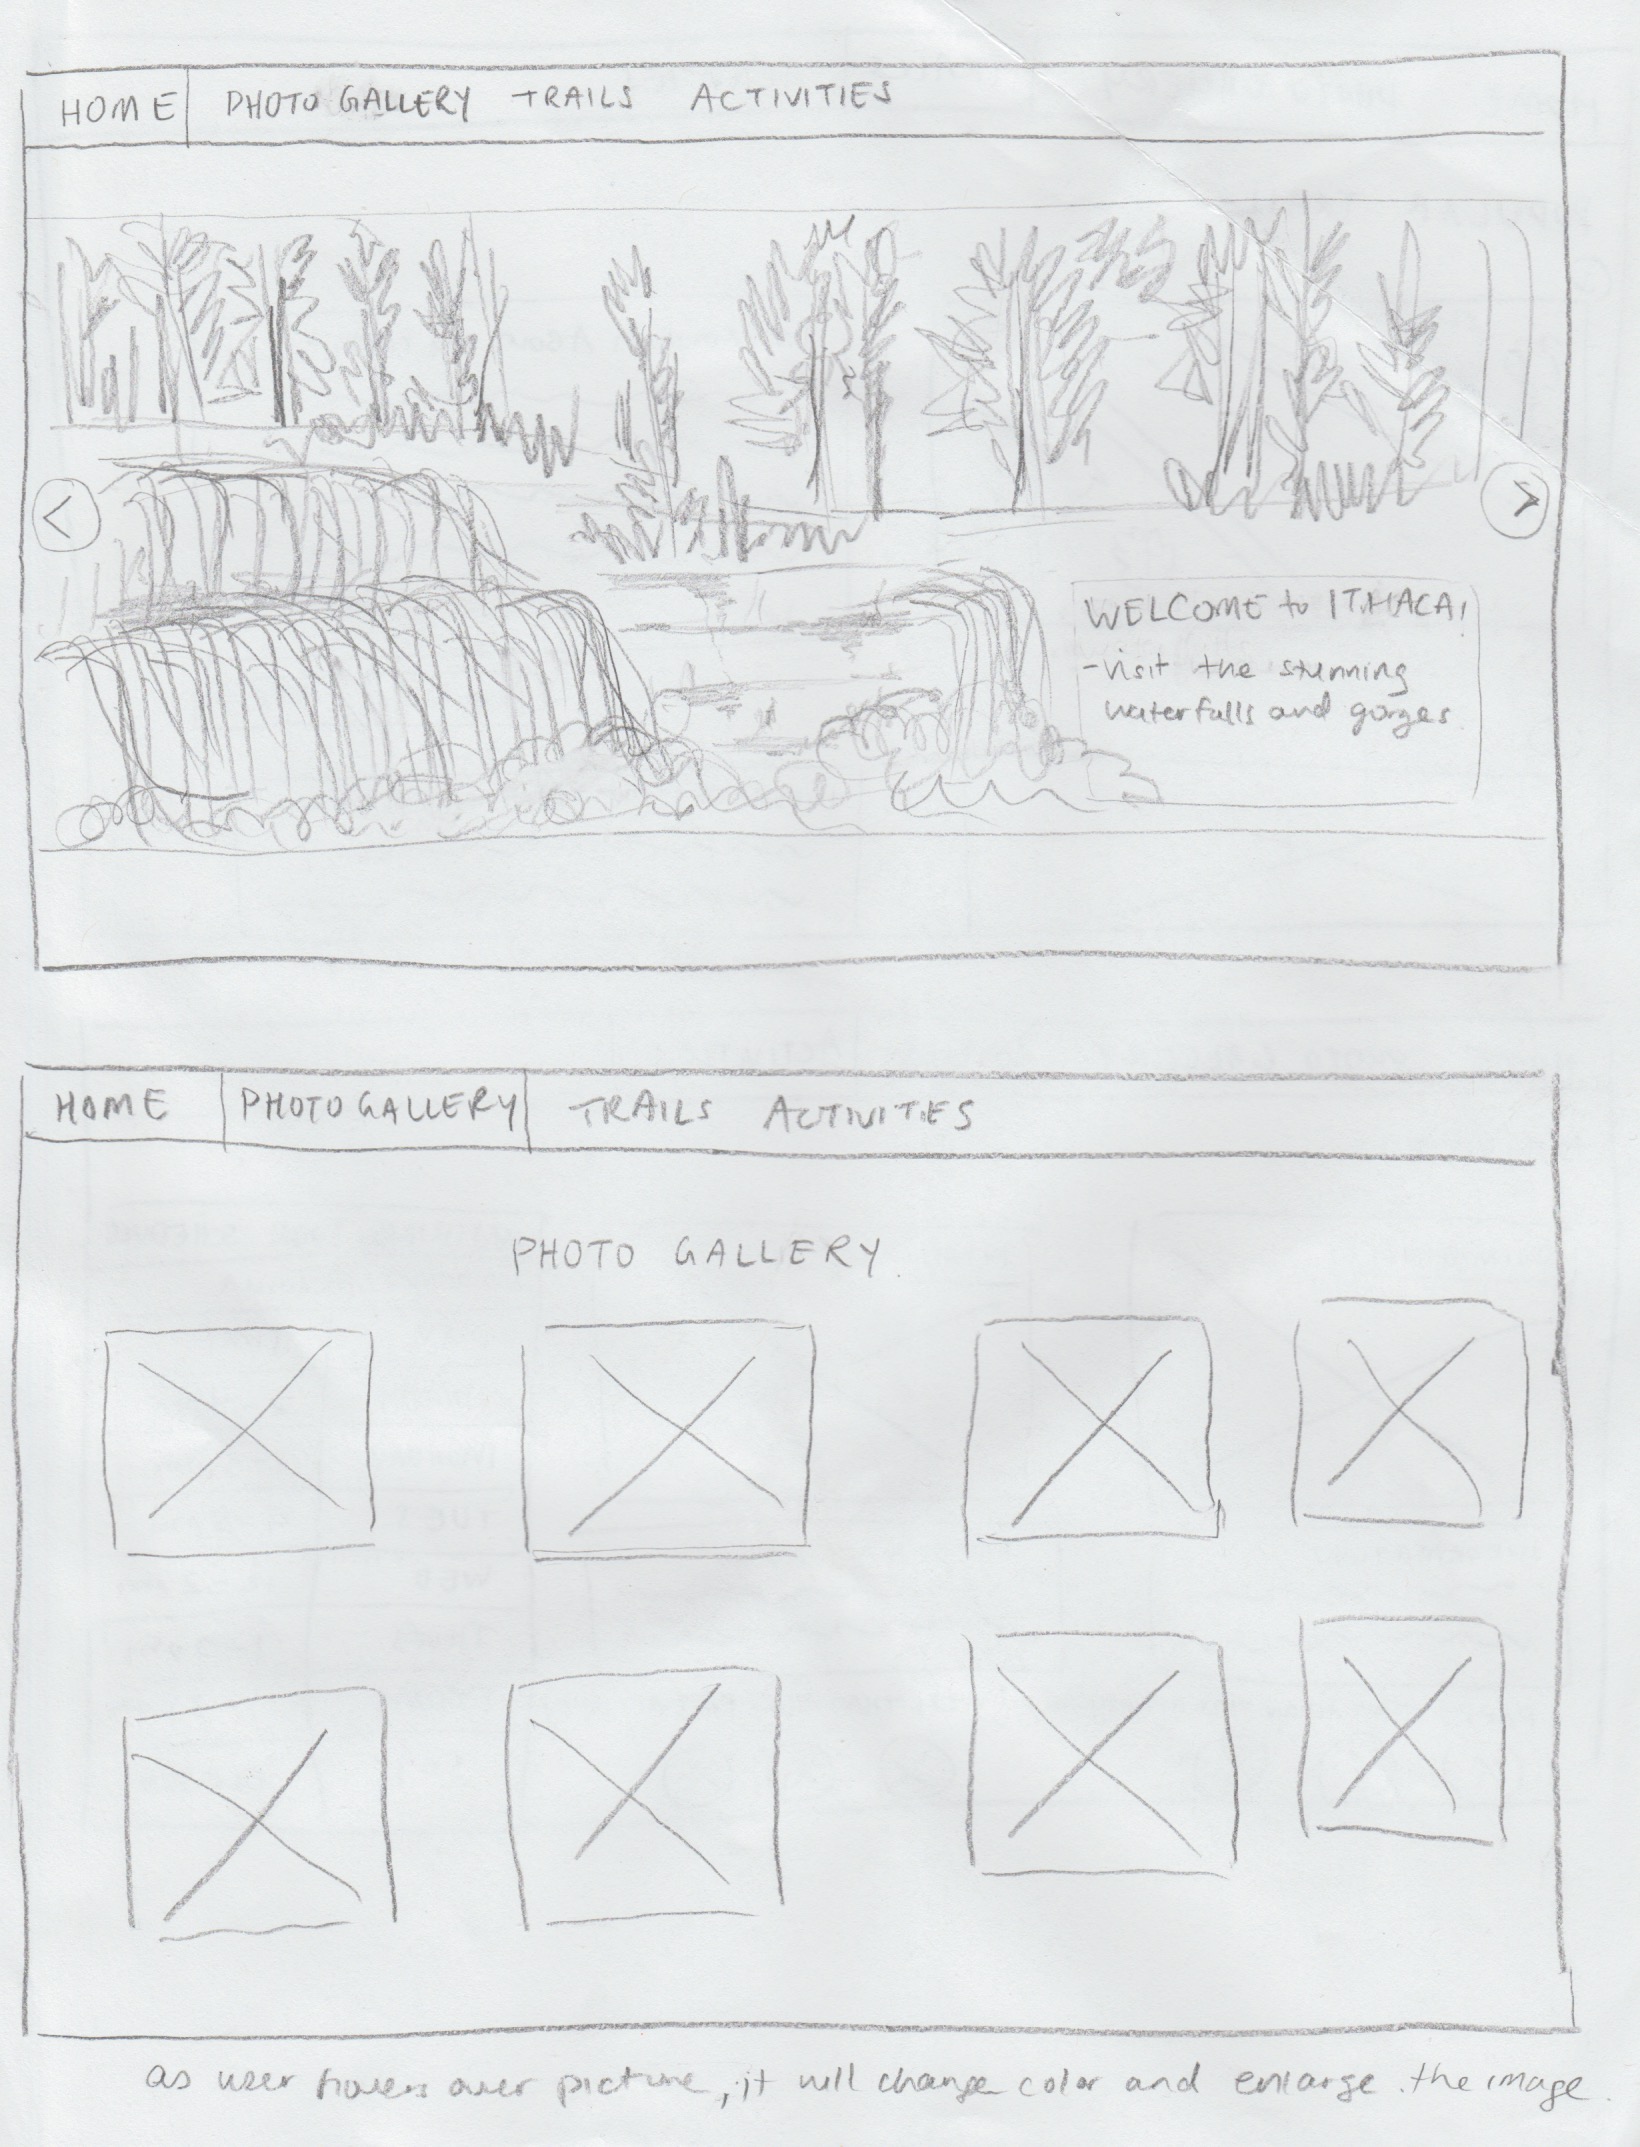 HOME PHOTO GALLERY TRAILS ACTIVITIES
< >
WELCOME to ITHACA!
-visit the stunning
waterfalls and gorges
HOME PHOTO GALLERY TRAILS ACTIVITIES
PHOTO GALLERY
as user hovers over picture, it will change color and enlarge the image.